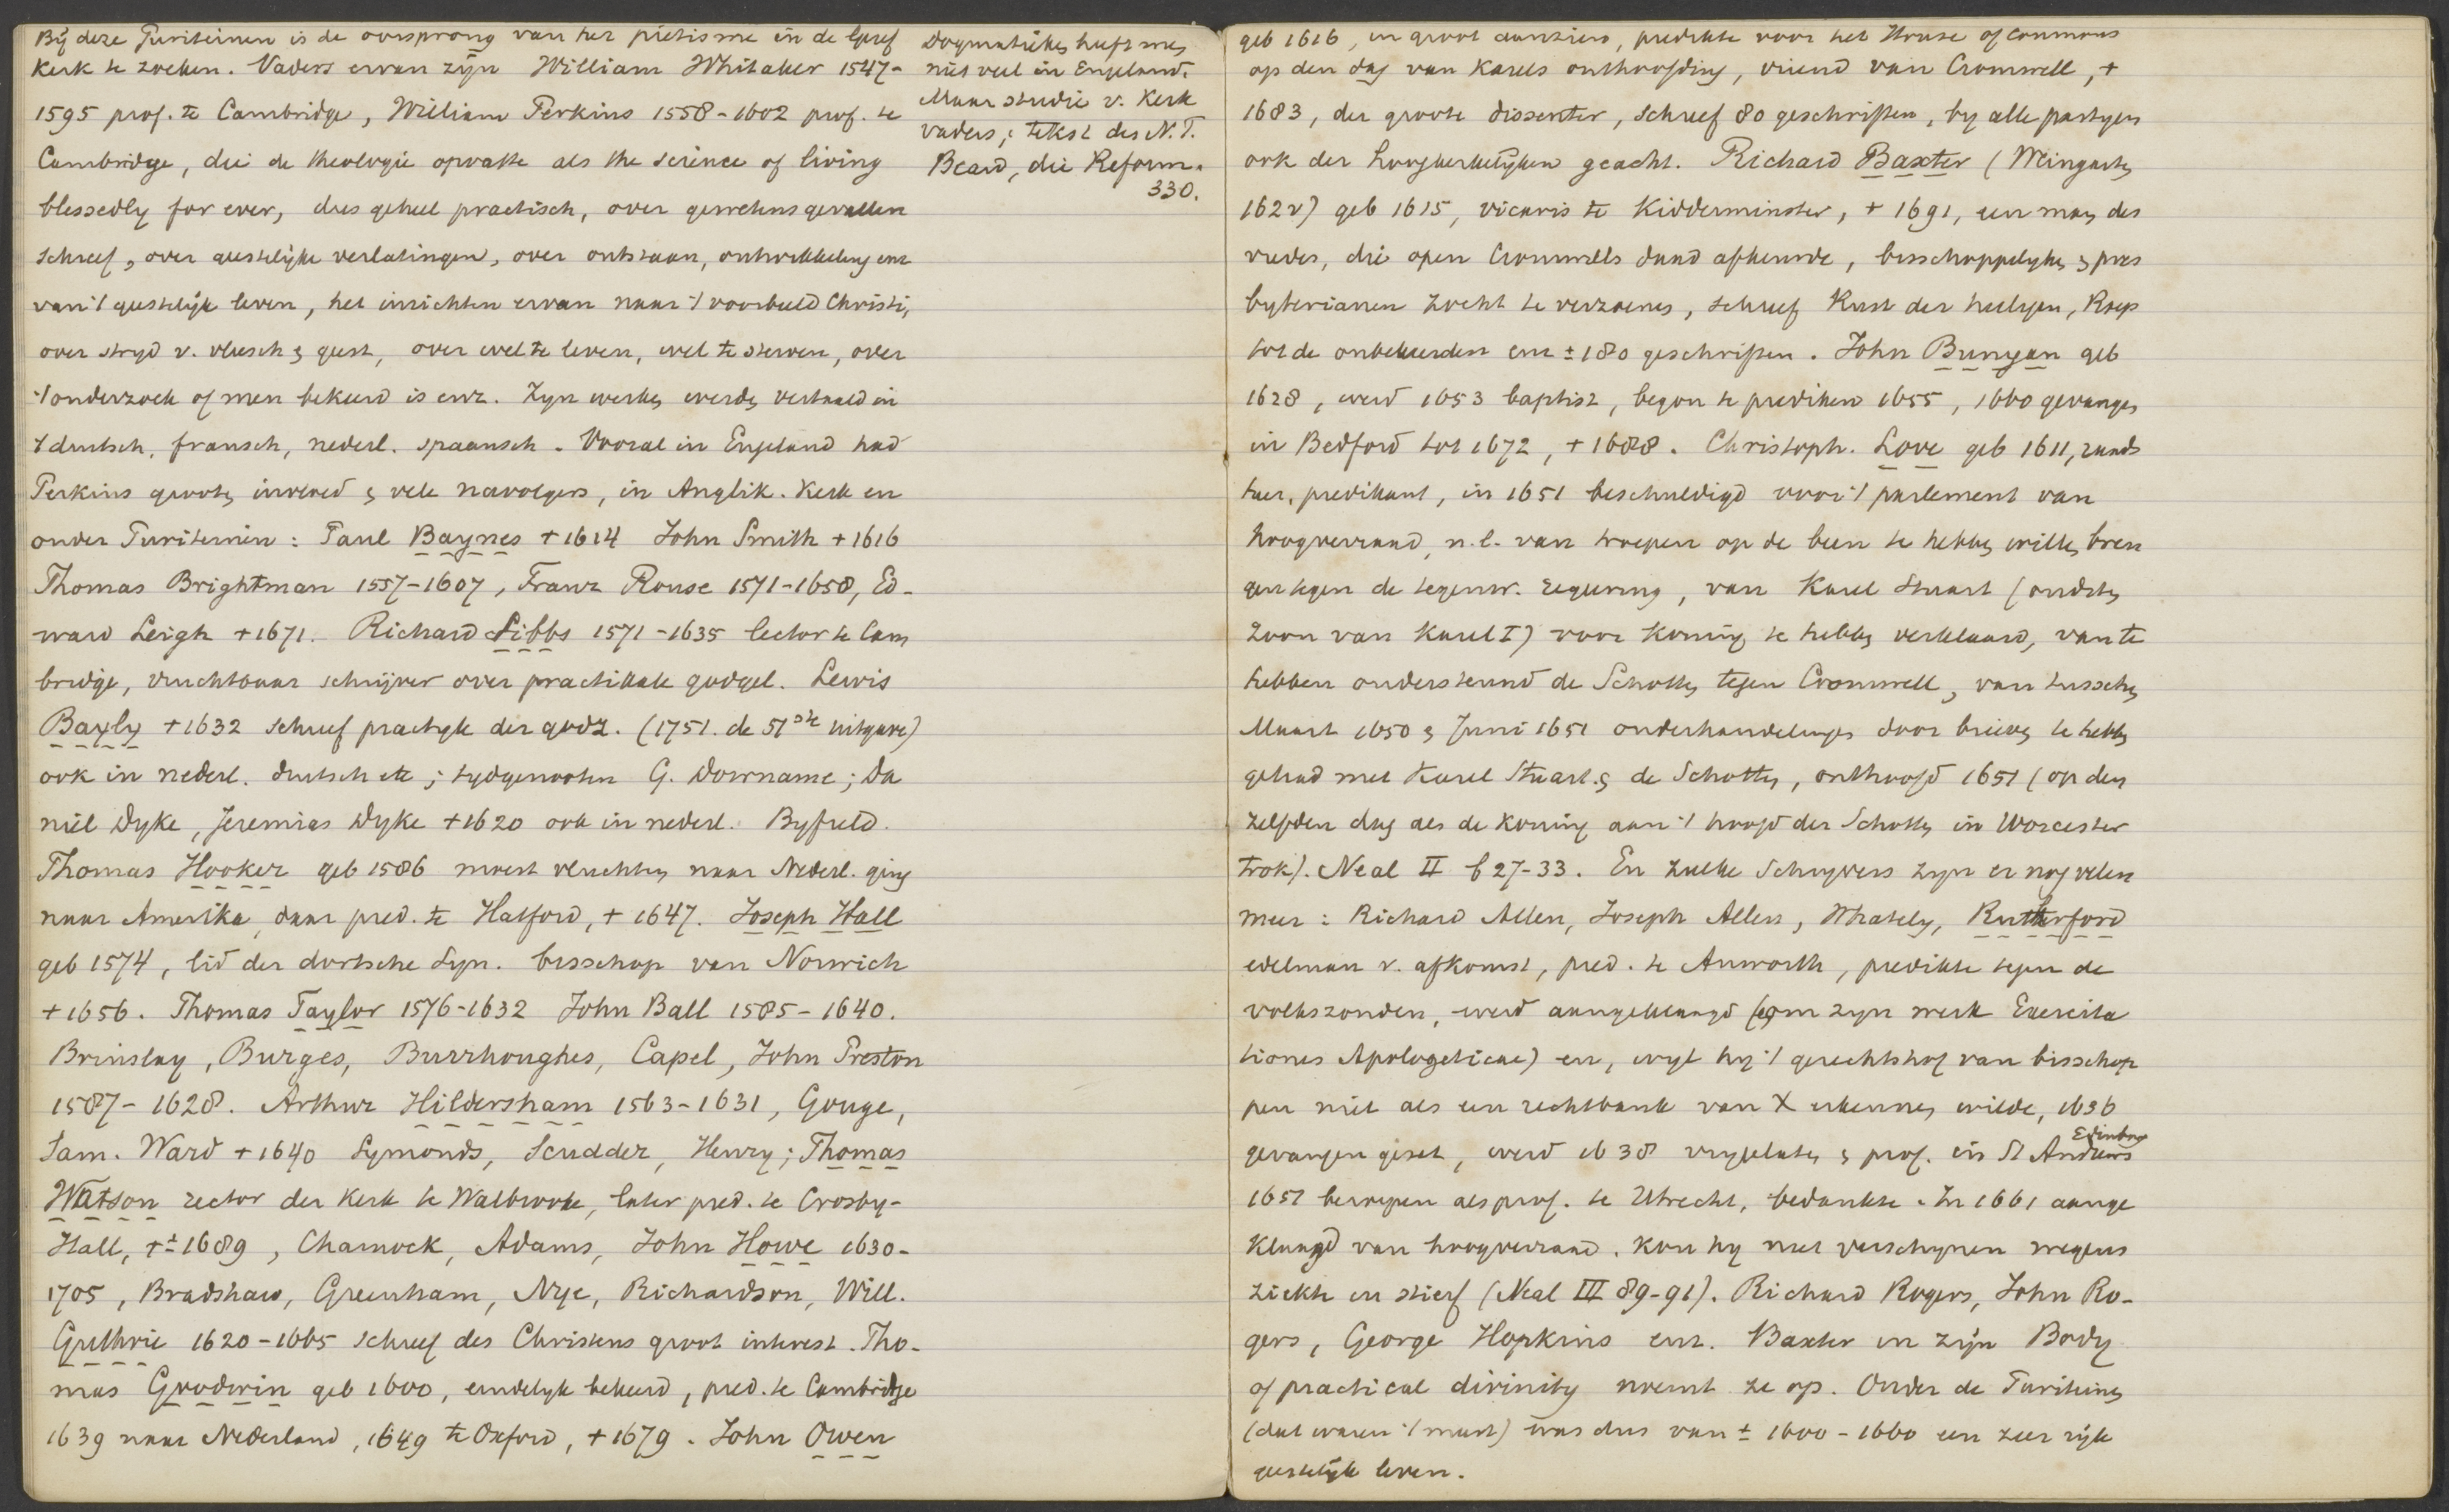 Bij deze Puriteinen is de oorsprong van het pietisme in de Geref
Kerk te zoeken. Vaders ervan zijn William Whitaker 1547-
1595 prof. te Cambridge, William Perkins 1558-1602 prof. te
Cambridge, die de theologie opvatte als the science of living
blessedly for ever, dus geheel practisch, over gewetensgevallen
schreef, over geestelijke verlatingen, over ontstaan, ontwikkeling enz
van 't geestelijk leven, het inrichten ervan naar 't voorbeeld Christi,
over stryd v. vleesch & geest, over wel te leven, wel te sterven, over
't onderzoek of men bekeerd is enz. Zyn werken werden vertaald in
't duitsch, fransch, nederl. spaansch. Vooral in Engeland had
Perkins grooten invloed & vele navolgers, in Anglik. Kerk en
onder Puriteinen: Paul Baynes + 1614 John Smith + 1616
Thomas Brightman 1557-1607, Franz Rouse 1571-1658, Ed-
ward Leigh + 1671. Richard Sibbs 1571-1635 lector te Cam
bridge, vruchtbaar schrijver over practikale godgel. Lewis
Bayly + 1632 schreef practyk der godz. (1751. de 51ste uitgave)
ook in nederl. duitsch etc; tydgenooten G. Downame; Da
niel Dyke, Jeremias Dyke + 1620 ook in nederl. Byfield.
Thomas Hooker geb 1586 moest vluchten naar Nederl. ging
naar Amerika, daar pred. te Hatford, + 1647. Joseph Hall
geb 1574, lid der dortsche Syn. bisschop van Norwich
+ 1656. Thomas Taylor 1576-1632 John Ball 1585-1640.
Brinsley, Burges, Burrhoughes, Capel, John Preston
1587-1628. Arthur Hildersham 1563-1631, Gouge,
Sam. Ward + 1640 Symonds, Scudder, Henry; Thomas
Watson rector der Kerk te Walbrooke, later pred. te Crosby-
Hall, +± 1689, Charnock, Adams, John Howe 1630-
1705, Bradshaw, Greenham, Nye, Richardson, Will.
Guthrie 1620-1665 schreef des Christens groot interest. Tho-
mas Goodwin geb 1600, eindelyk bekeerd, pred. te Cambridge
1639 naar Nederland, 1649 te Oxford, + 1679. John Owen
Dogmatieken heeft men
niet veel in Engeland.
Maar studie v. Kerk
vaders; tekst des N.T.
Beard, die Reform.
330.
geb 1616, in groot aanzien, predikte voor het House of Commons
op den dag van Karels onthoofding, vriend van Cromwell, +
1683, der groote dissenter, schreef 80 geschriften, by alle partyen
ook der hoogkerkelyken geacht. Richard Baxter (Weingarten
162v) geb 1615, vicaris te Kidderminster, + 1691, een man des
vredes, die open Cromwells daad afkeurde, bisschoppelyken & pres
byterianen zocht te verzoenen, schreef Rust der heiligen, Roep
tot de onbekeerden enz ± 180 geschriften. John Bunyan geb
1628, werd 1653 baptist, begon te prediken 1655, 1660 gevangen
in Bedford tot 1672, + 1688. Christoph. Love geb 1611,
predikant, in 1651 beschuldigd voor 't parlement van
hoogverraad, n.l. van troepen op de been te hebben willen bren
gen tegen de tegenw. regering, van Karel Stuart (oudsten
zoon van Karel I) voor koning te hebben verklaard, van te
hebben ondersteund de Schotten tegen Cromwell, van tusschen
Maart 1650 & Juni 1651 onderhandelingen door brieven te hebben
gehad met Karel Stuart & de Schotten, onthoofd 1651 (op den
zelfden dag als de koning aan 't hoofd der Schotten in Worcester
trok). Neal II 627-33. En zulke Schryvers zyn er nog velen
meer: Richard Allen, Joseph Allen, Whately, Rutherford
edelman v. afkomst, pred. te Anworth, predikte tegen de
volkszonden, werd aangeklaagd (om zyn werk Exercita
tiones Apologeticae) en, wyl hy 't gerechtshof van bisschop
pen niet als een rechtbank van X erkennen wilde, 1636
gevangen gezet, werd 1638 vrygelaten & prof. in St Andrews
Edinburg
1651 beroepen als prof. te Utrecht, bedankte. In 1661 aange
klaagd van hoogverraad, kon hy niet verschynen wegens
ziekte en stierf (Neal III 89-91). Richard Rogers, John Ro-
gers, George Hopkins enz. Baxter in zijn Body
of practical divinity noemt ze op. Onder de Puriteinen
(dat waren 't meest) was dus van ± 1600-1660 een zeer rijk
geestelijk leven.